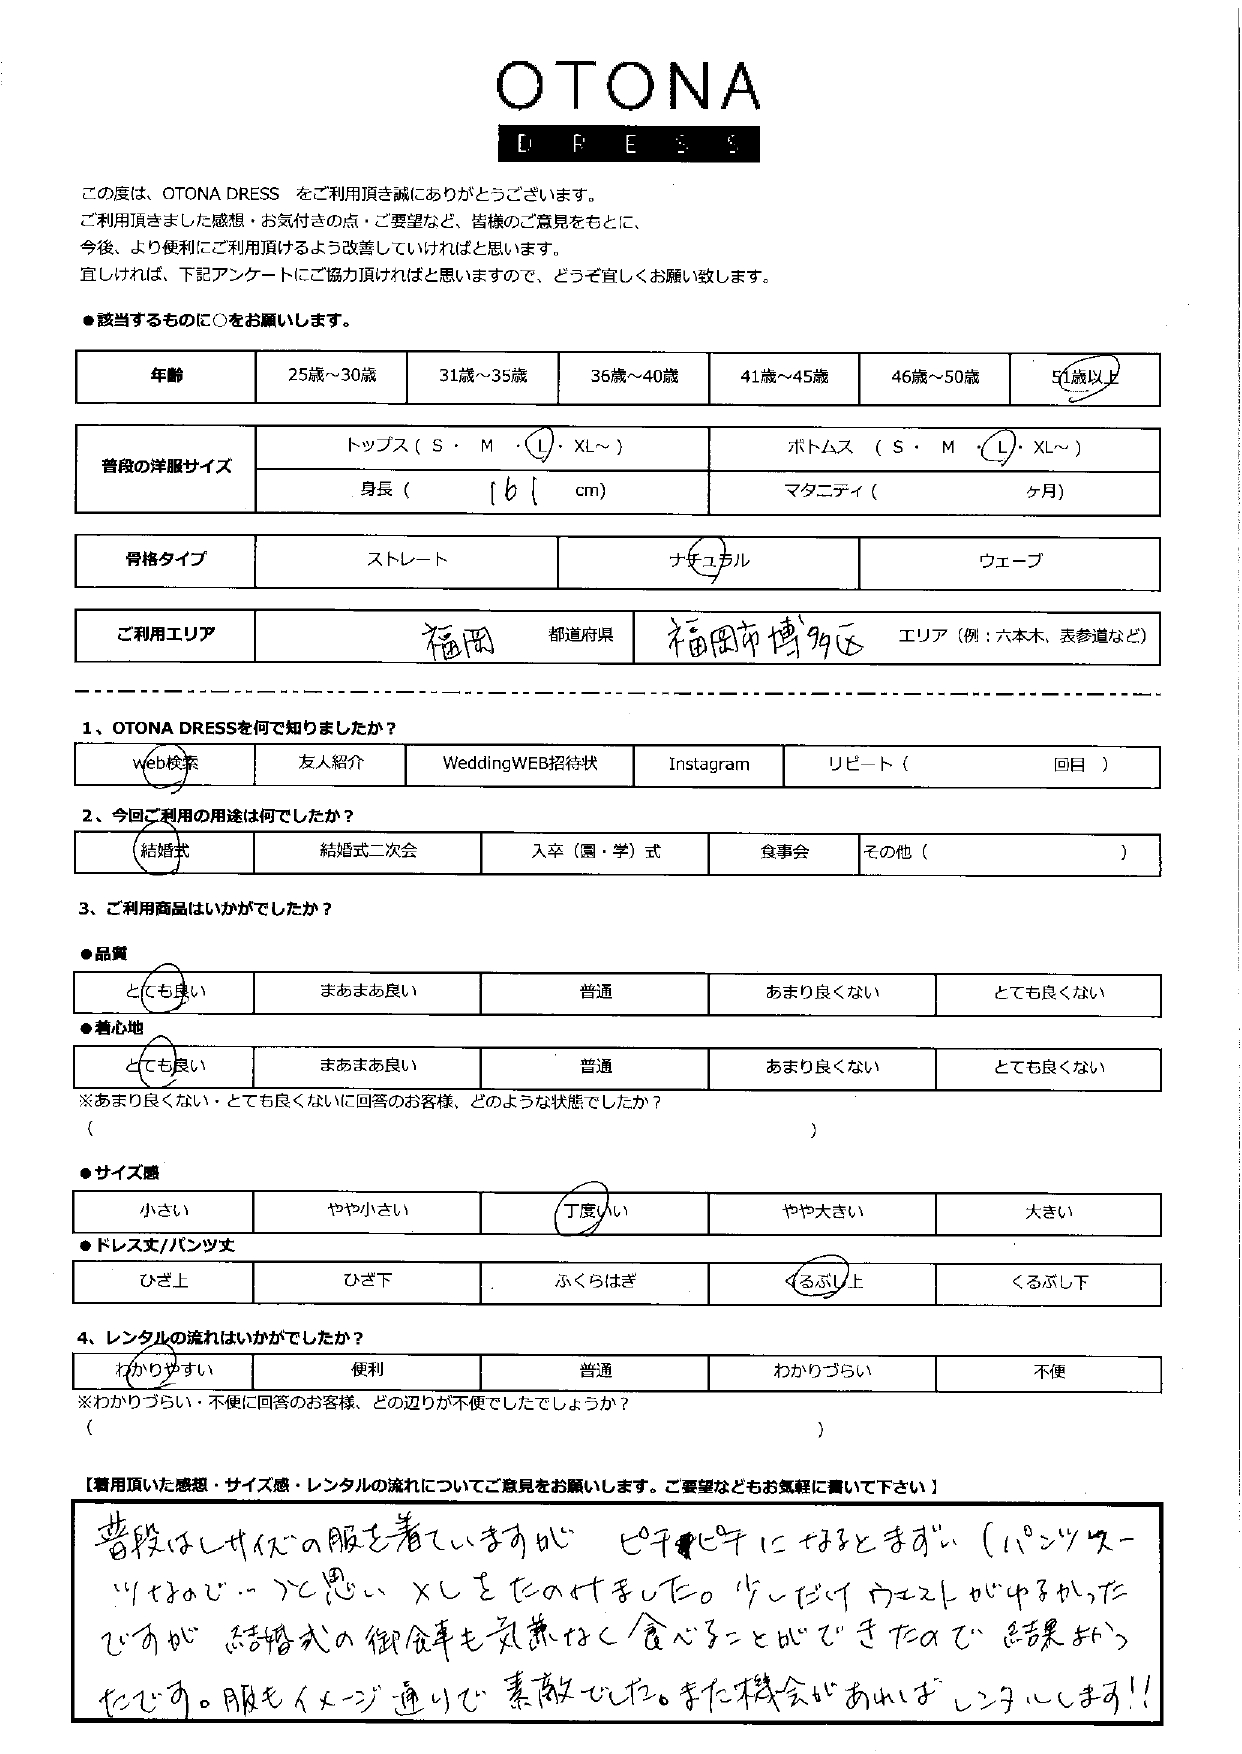 OTONA
DRESS
この度は、OTONA DRESS をご利用頂き誠にありがとうございます。
ご利用頂きました感想・お気付きの点・ご要望など、皆様のご意見をもとに、
今後、より便利にご利用頂けるよう改善していければと思います。
宜しければ、下記アンケートにご協力頂ければと思いますので、どうぞ宜しくお願い致します。
●該当するものに○をお願いします。
年齢 25歳～30歳 31歳～35歳 36歳～40歳 41歳～45歳 46歳～50歳 51歳以上
普段の洋服サイズ トップス ( S ・ M ・ L ・ XL～ ) ボトムス ( S ・ M ・ L ・ XL～ )
身長 ( 161 cm) マタニティ ( ヶ月)
骨格タイプ ストレート ナチュラル ウェーブ
ご利用エリア 福岡 都道府県 福岡市博多区 エリア（例：六本木、表参道など）
1、OTONA DRESSを何で知りましたか？
web検索 友人紹介 WeddingWEB招待状 Instagram リピート（ 回目 ）
2、今回ご利用の用途は何でしたか？
結婚式 結婚式二次会 入卒（園・学）式 食事会 その他（ ）
3、ご利用商品はいかがでしたか？
●品質
とても良い まあまあ良い 普通 あまり良くない とても良くない
●着心地
とても良い まあまあ良い 普通 あまり良くない とても良くない
※あまり良くない・とても良くないに回答のお客様、どのような状態でしたか？
（ ）
●サイズ感
小さい やや小さい 丁度いい やや大きい 大きい
●ドレス丈/パンツ丈
ひざ上 ひざ下 ふくらはぎ くるぶし上 くるぶし下
4、レンタルの流れはいかがでしたか？
わかりやすい 便利 普通 わかりづらい 不便
※わかりづらい・不便に回答のお客様、どの辺りが不便でしたでしょうか？
（ ）
【着用頂いた感想・サイズ感・レンタルの流れについてご意見をお願いします。ご要望などもお気軽に書いて下さい】
普段はLサイズの服を着ていますが ピチピチになるとまずい (パンツスー
ツなので‥)と思い XLをたのけました。少しだけウエストがゆるかった
ですが 結婚式の御食事も気兼なく食べることができたので 結果よかっ
たです。服もイメージ通りで 素敵でした。また機会があればレンタルします!!